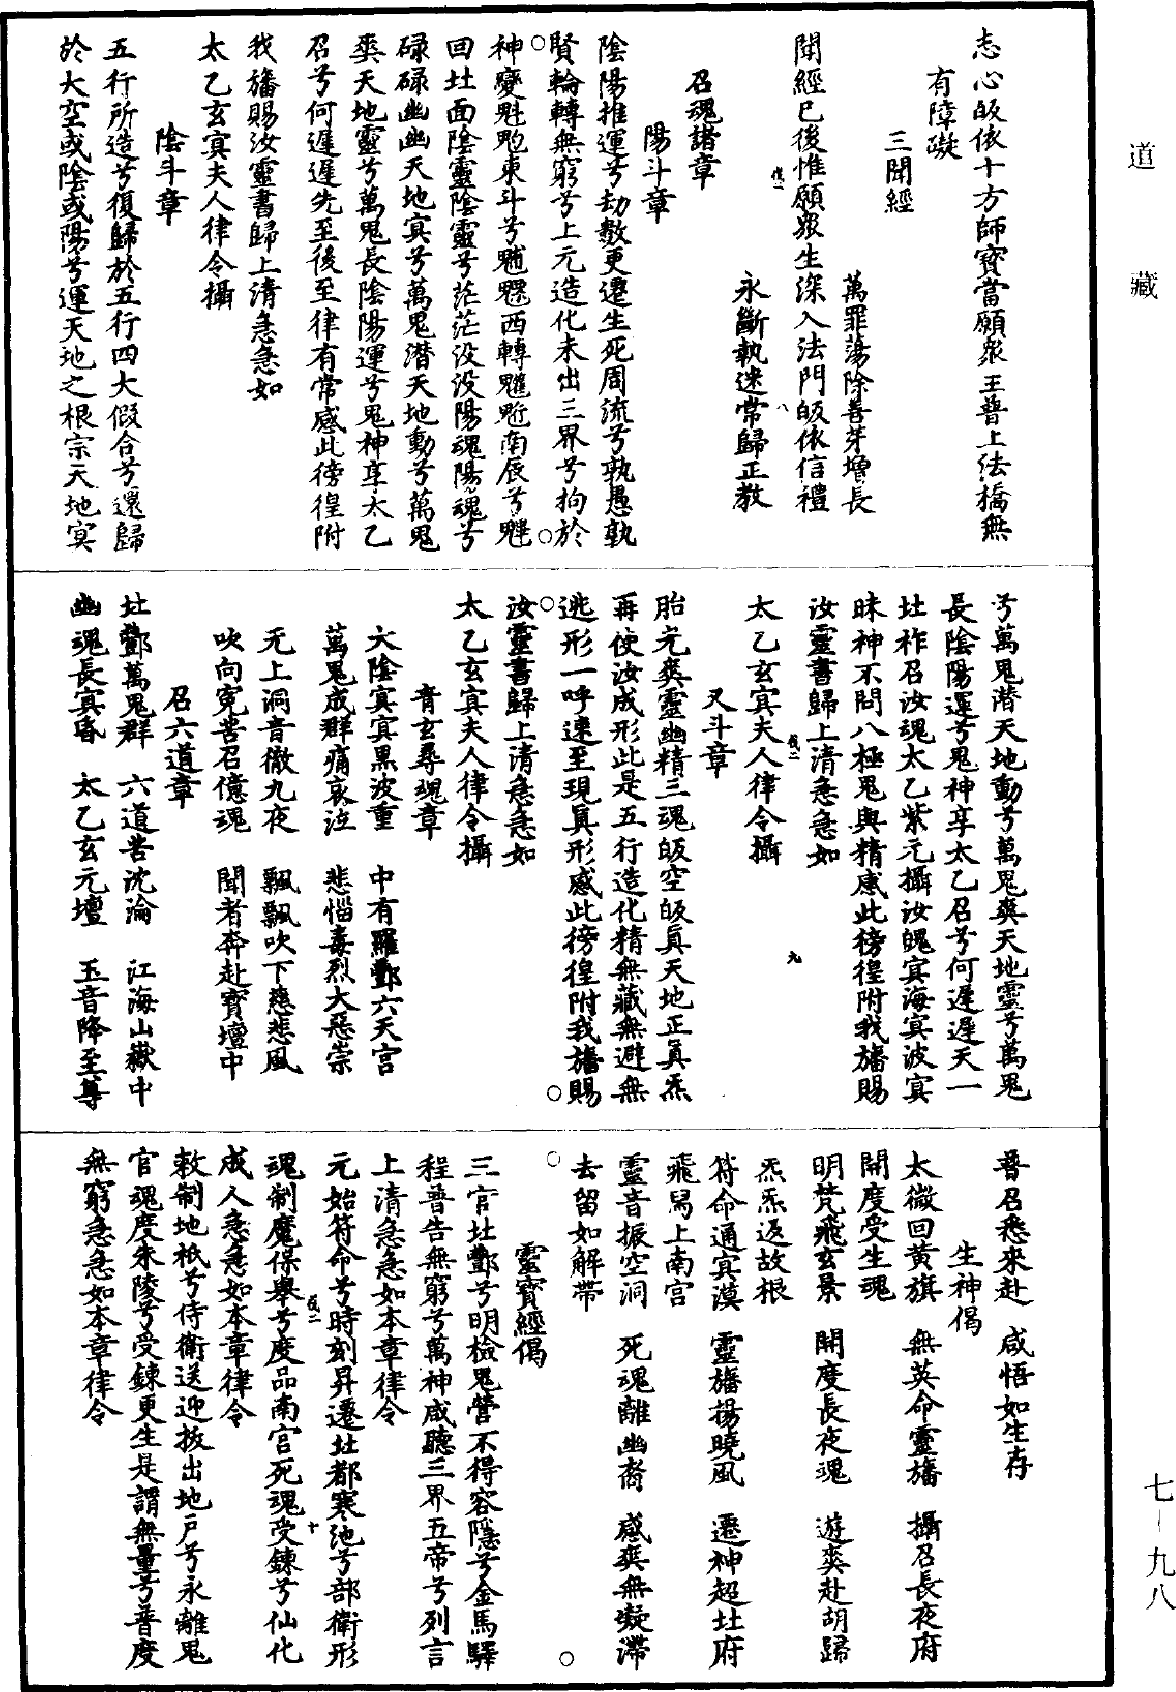 道藏
志心皈依十方師寶當願衆王普上法橋無
有障礙
三聞經
萬罪蕩除善芽增長
聞經已後惟願衆生深入法門皈依信禮
永斷執迷常歸正教
召魂諸章
陽斗章
陰陽推運兮劫數更遷生死周流兮孰愚孰
賢輪轉無窮兮上元造化未出三界兮拘於
神變魁䰢東斗兮魓魒西轉魋魀南辰兮魋
回北面陰靈陰靈兮茫茫没没陽魂陽魂兮
碌碌幽幽天地㝠兮萬鬼潛天地動兮萬鬼
奕天地靈兮萬鬼長陰陽運兮鬼神享太乙
召兮何遲遲先至後至律有常感此徬徨附
我旛賜汝靈書歸上清急急如
太乙玄㝠夫人律令攝
陰斗章
五行所造兮復歸於五行四大假合兮還歸
於大空或陰或陽兮運天地之根宗天地㝠
兮萬鬼潛天地動兮萬鬼奕天地靈兮萬鬼
長陰陽運兮鬼神享太乙召兮何遲遲天一
北柞召汝魂太乙紫元攝汝魄㝠海㝠波㝠
昧神不問八極鬼與精感此徬徨附我旛賜
汝靈書歸上清急急如
太乙玄㝠夫人律令攝
又斗章
胎光爽靈幽精三魂皈空皈眞天地正眞炁
再使汝成形此是五行造化精無藏無避無
逃形一呼速至現眞形感此徬徨附我旛賜
汝靈書歸上清急急如
太乙玄㝠夫人律令攝
青玄尋魂章
大陰㝠㝠黑波重　中有羅酆六天宮
萬鬼成群痛哀泣　悲惱毒烈大惡崇
无上洞音徹九夜　飄飄吹下慈悲風
吹向寃苦召億魂　聞者奔赴寶壇中
召六道章
北酆萬鬼群　六道苦沈淪　江海山嶽中
幽魂長㝠昏　太乙玄元壇　玉音降至尊
普召悉來赴　咸悟如生存
生神偈
太微回黄旗　無英命靈旛　攝召長夜府
開度受生魂
明梵飛玄景　開度長夜魂　遊爽赴胡歸
炁炁返故根
符命通㝠漠　靈旛揚曉風　遷神超北府
飛舄上南宮
靈音振空洞　死魂離幽裔　感爽無凝滯
去留如解帶
靈寶經偈
三官北酆兮明檢鬼營不得容隱兮金馬驛
程普告無窮兮萬神咸聽三界五帝兮列言
上清急急如本章律令
元始符命兮時刻昇遷北都寒池兮部衛形
魂制魔保舉兮度品南宮死魂受鍊兮仙化
成人急急如本章律令
敕制地祇兮侍衛送迎拔出地户兮永離鬼
官魂度朱陵兮受鍊更生是謂無量兮普度
無窮急急如本章律令
七－九八